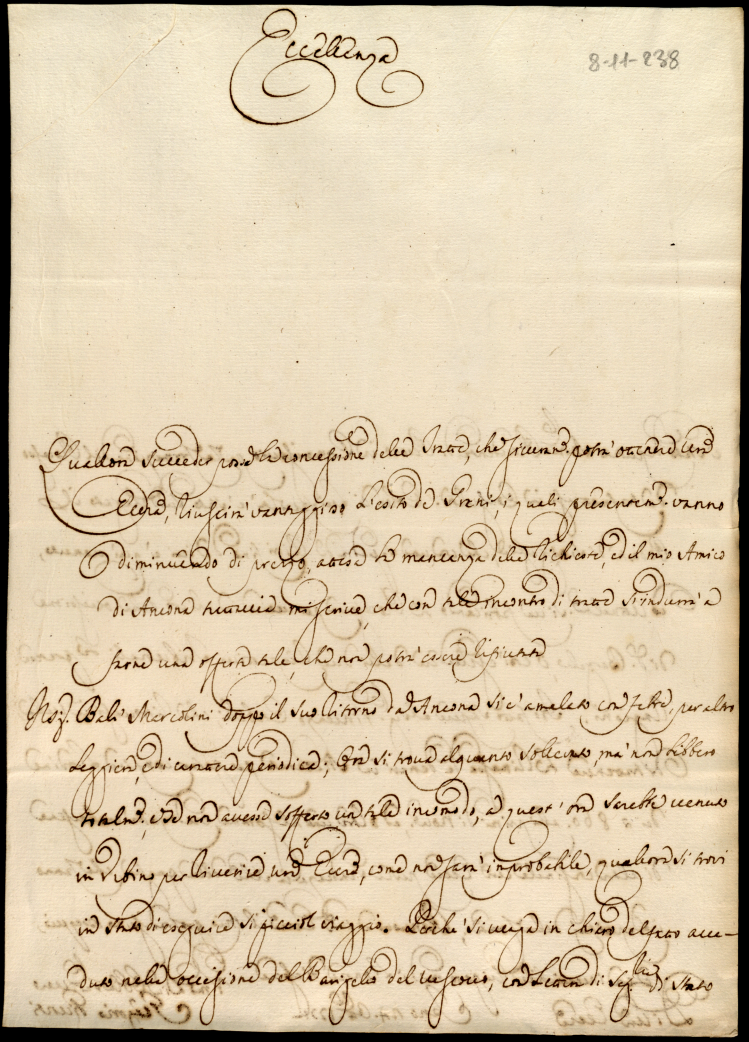 Eccellenza
8-11-238
Qualora succeder possa la concessione delle Tratte, che sicuram. potrà ottenere vrã
Eccza, riuscirà vantaggioso l'esito de Grani, i quali presentem. vanno
diminuendo di prezzo, attesa la mancanza delle richieste, ed il mio Amico
di Ancona tuttavia mi scrive, che con tale incontro di tratte s'indurrà a
farne una offerta tale, che non potrà essere rifiutata
Il Sig. Balì Marcolini doppo il suo ritorno da Ancona si è amalato con febre, per altro
leggiera, e di carattere periodica; Ora si trova alquanto sollevato, mà non libbero
totalm., e se non avesse sofferto un tale incomodo, a quest'ora sarebbe venuto
in Urbino per riverire vrã Eccza, come non sarà improbabile, qualora si trovi
in stato di eseguire sì picciol viaggio. Perche si venga in chiaro del fatto acca-
duto nella occasione del Bargello del Vescovo, con Lettera di Seg.ria di Stato